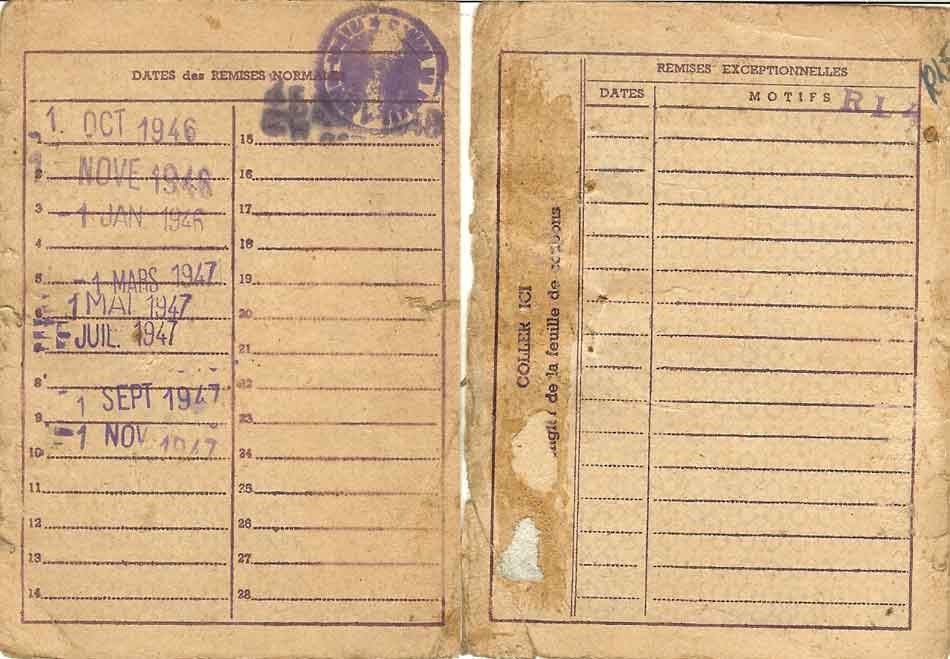 DATES des REMISES NORMALES
1. OCT 1946
1 NOVE 1946
3 -1 JAN 1946
4
5 -1 MARS 1947
6 1 MAI 1947
5 JUIL. 1947
8
9 -1 SEPT 1947
10 -1 NOV 1947
11
12
13
14
15
16
17
18
19
20
21
22
23
24
25
26
27
28
COLLER ICI
de la feuille de coupons
REMISES EXCEPTIONNELLES
DATES
MOTIFS